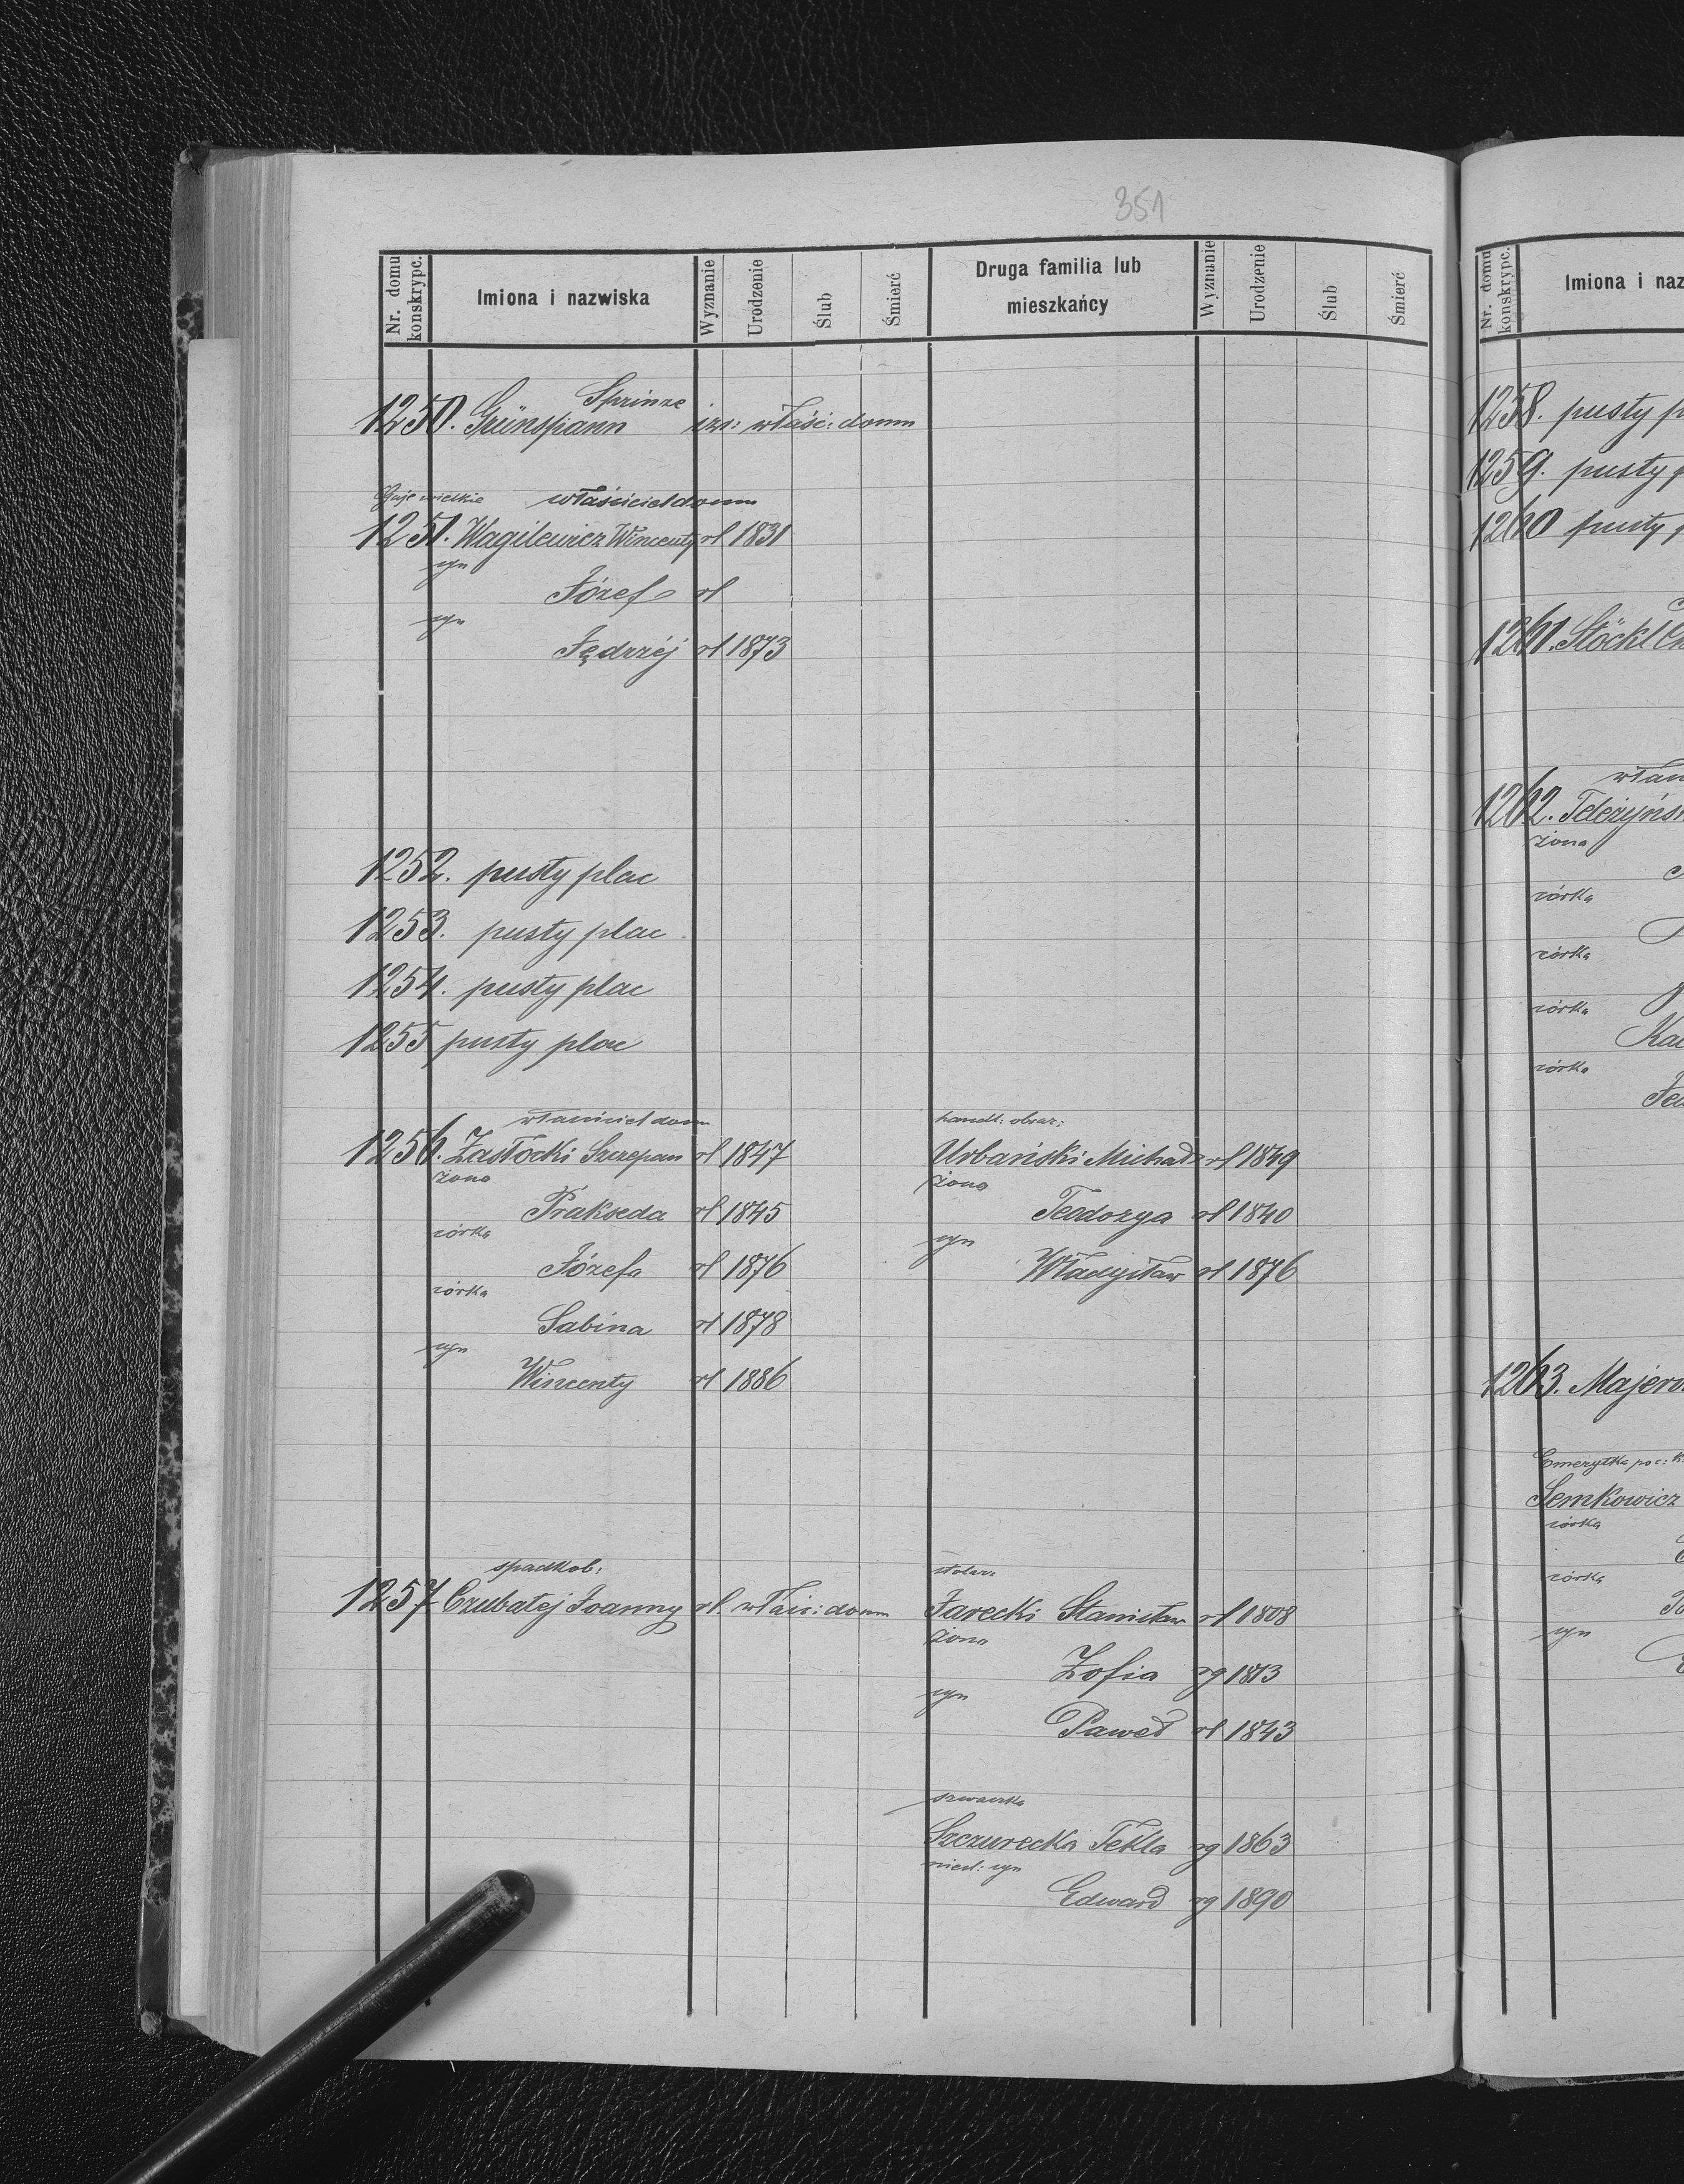 351
Nr. domu konskrypc.
Imiona i nazwiska
Wyznanie
Urodzenie
Ślub
Śmierć
Druga familia lub mieszkańcy
Wyznanie
Urodzenie
Ślub
Śmierć
Sprinze
1250. Grünspann izr: właśc: domu
Gaje wielkie właściciel domu
1251. Wagilewicz Wincenty rl 1831
syn
Józef rl
syn
Jędrzéj rl 1873
1252. pusty plac
1253. pusty plac
1254. pusty plac
1255 pusty plac
właściciel domu
1256. Zastocki Szczepan rl 1847
żona
Prakseda rl 1845
córka
Józefa rl 1876
córka
Sabina rl 1878
syn
Wincenty rl 1886
handl: obraz:
Urbański Michał rl 1849
żona
Teodozya rl 1840
syn
Władysław rl 1876
spadkob:
1257 Czubatej Joanny rl. właśc: domu
stolarz
Jarecki Stanisław rl 1808
żona
Zofia rg 1813
syn
Paweł rl 1843
szwaczka
Szczurecka Tekla rg 1863
nieśl: syn
Edward rg 1890
Nr. domu konskrypc.
Imiona i naz
1258. pusty p
1259. pusty p
1260 pusty p
1261. Stöckl
właśc
1262. Teleżyńsk
żona
córka
córka
córka
córka
1263. Majero
Emerytka
Semkowicz
córka
córka
syn